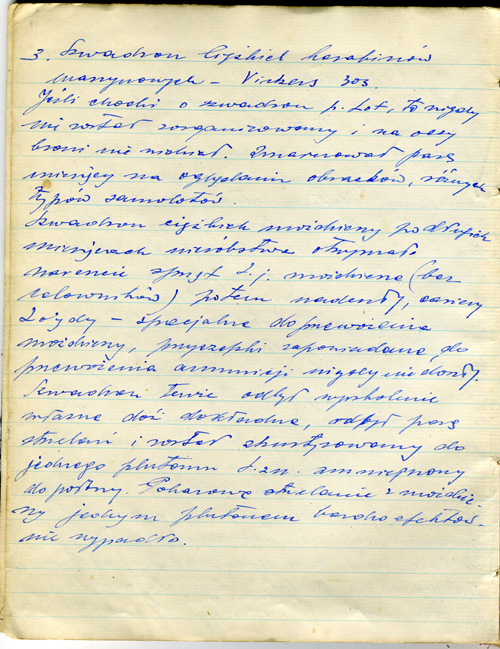 3. Szwadron Ciężkich karabinów
maszynowych – Vickers 303.
Jeśli chodzi o szwadron p. Lot, to nigdy
nie został zorganizowany i na oczy
broni nie widział. Zmarnował parę
miesięcy na oglądanie obrazków, różnych
typów samolotów.
Szwadron ciężkich moździerzy po długich
miesiącach nieróbstwa otrzymał
nareszcie sprzęt t.j. moździerze (bez
celowników) potem nadeszły, carriery
Lojdy – specjalne do przewożenia
moździerzy, przyczepki zapowiadane do
przewożenia amunicji nigdy nie doszły.
Szwadron tenże odbył wyszkolenie
własne dość dokładne, odbył parę
strzelań i został skurtyzowany do
jednego plutonu t.zn. zmniejszony
do połowy. Pokazowe strzelanie z moździe-
rzy jednym plutonem bardzo efektow-
nie wypadło.